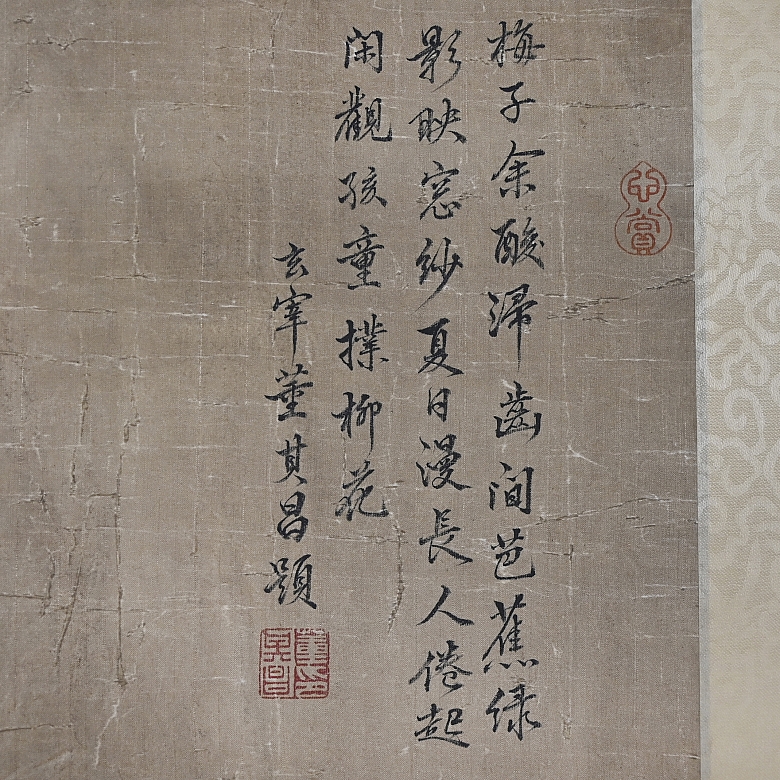 心賞
梅子余酸歸齒間芭蕉緑
影映窓紗夏日漫長人倦起
閑觀孩童撲柳花
玄宰董其昌題